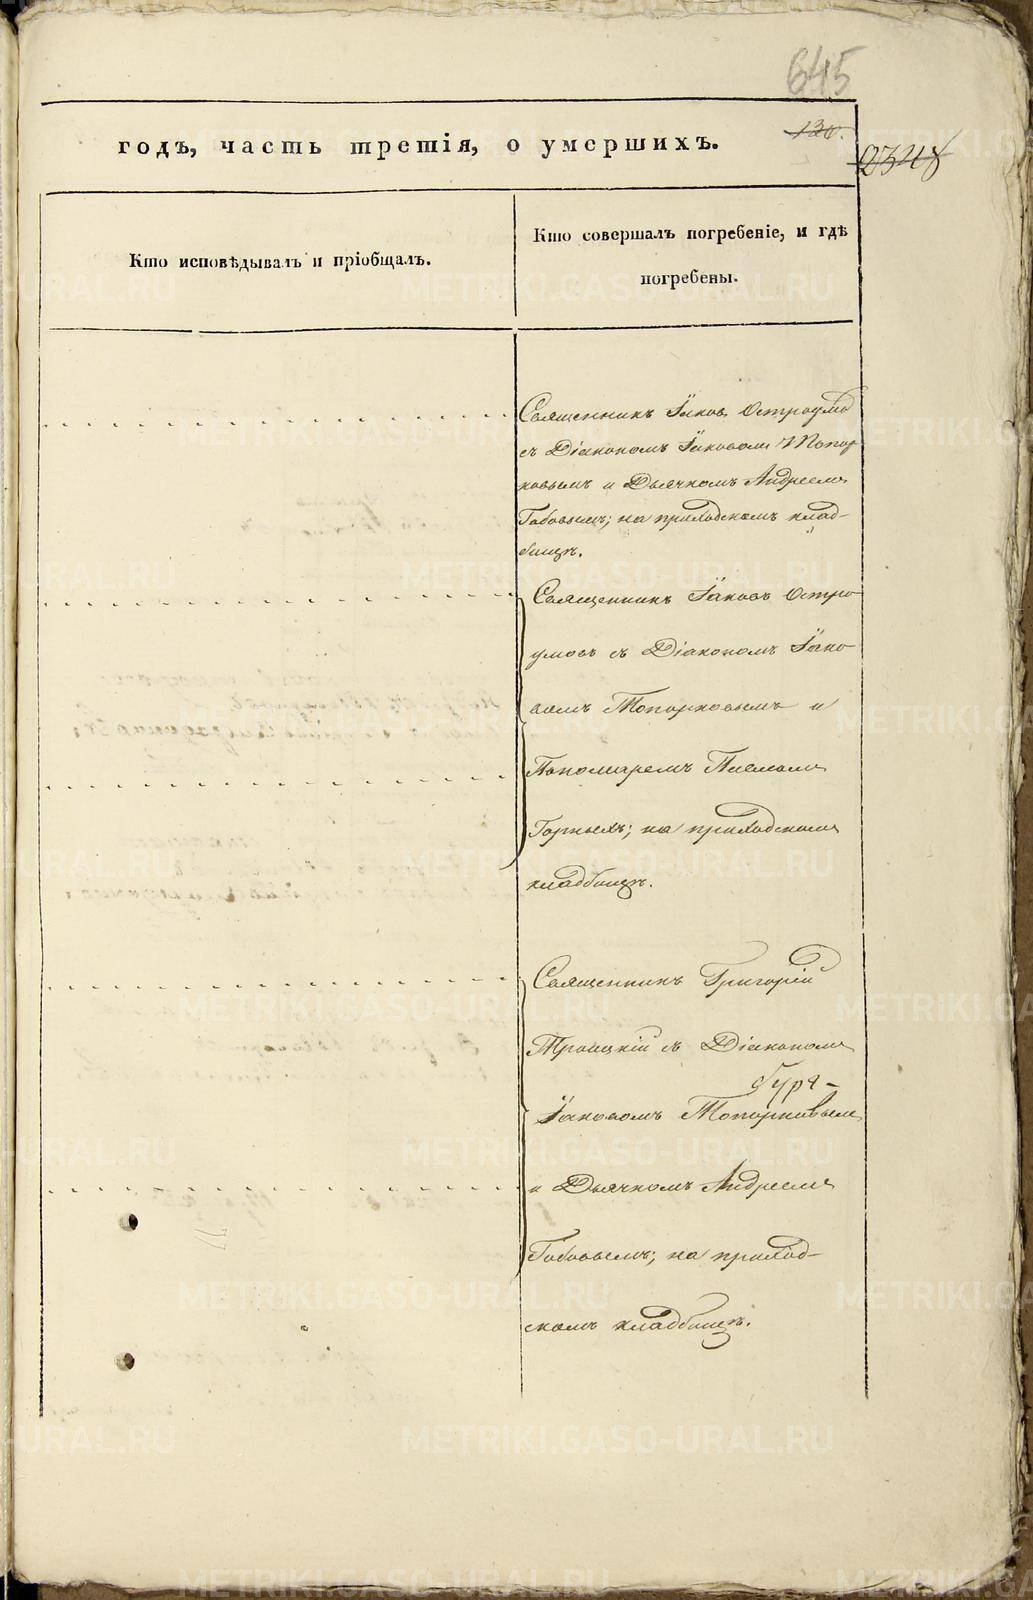 645
130.
годъ, часть третія, о умершихъ.
2348
Кто исповѣдывалъ и пріобщалъ.
Кто совершалъ погребеніе, и гдѣ
погребены.
Священникъ Іаковъ Остроумов
съ Діакономъ Іаковомъ Топор
ковымъ и Дьячкомъ Андреемъ
Бобовымъ; на приходскомъ клад-
бищѣ.
Священникъ Іаковъ Остро-
умовъ съ Діакономъ Іако-
вомъ Топорковымъ и
Пономаремъ
Горнымъ; на приходскомъ
кладбищѣ.
Священникъ Григорій
Троицкій съ Діакономъ
Іаковомъ Топорковымъ
и Дьячкомъ Андреемъ
Бобовымъ; на приход-
скомъ кладбищѣ.
METRIKI.GASO-URAL.RU